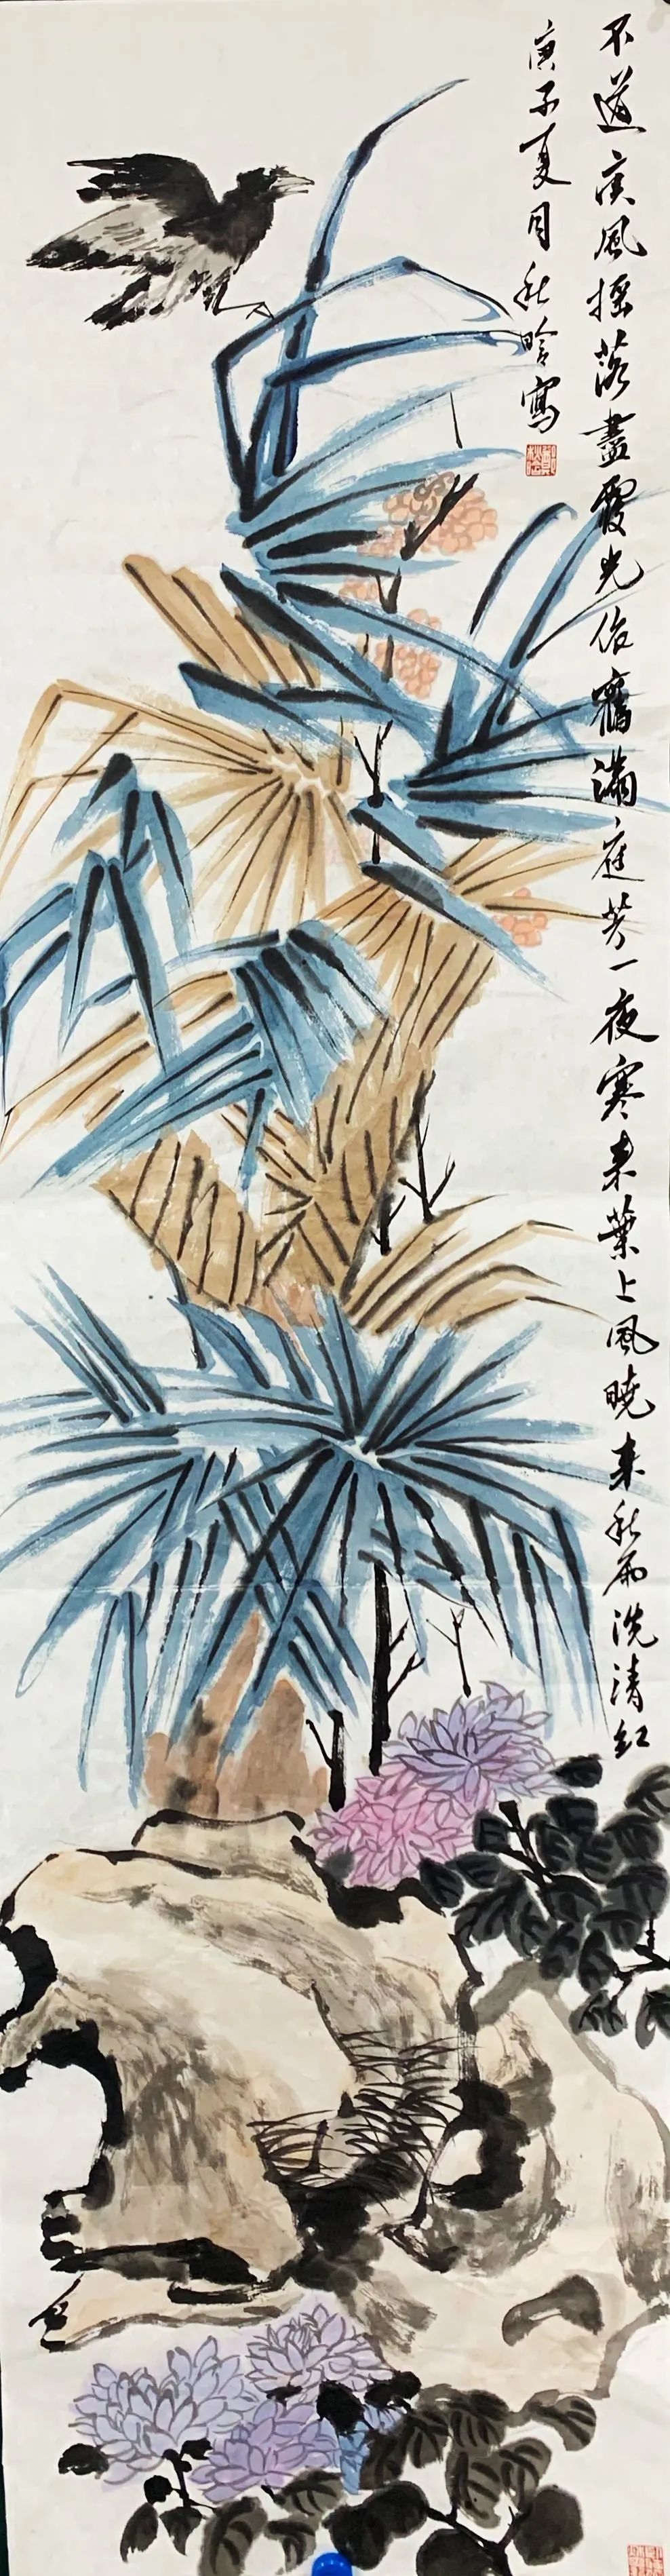 不道商風搖落盡霞光依舊滿庭芳一夜寒來葉上風曉來秋雨洗清紅
庚子夏月秋吟寫